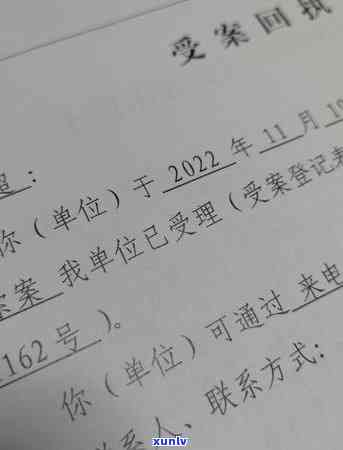 受案回执
：
你（单位）于 2022 年 11 月 19
案 我单位已受理（受案登记表
162 号 ）。
你（单位）可通过 来电
联系人、联系方式：
xunlv